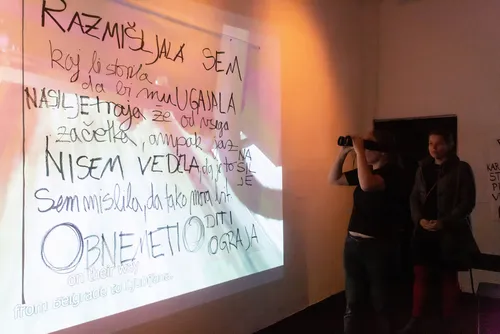 RAZMIŠLJALA SEM
kaj bi storila
da bi mu UGAJALA
NASILJE traja že od vsega
začetka, ampak jaz
NISEM VEDELA, da je to NASILJE
Sem mislila, da tako mora biti
OBNEMETI
OGRAJA
on their way
from Belgrade to Ljubljana.